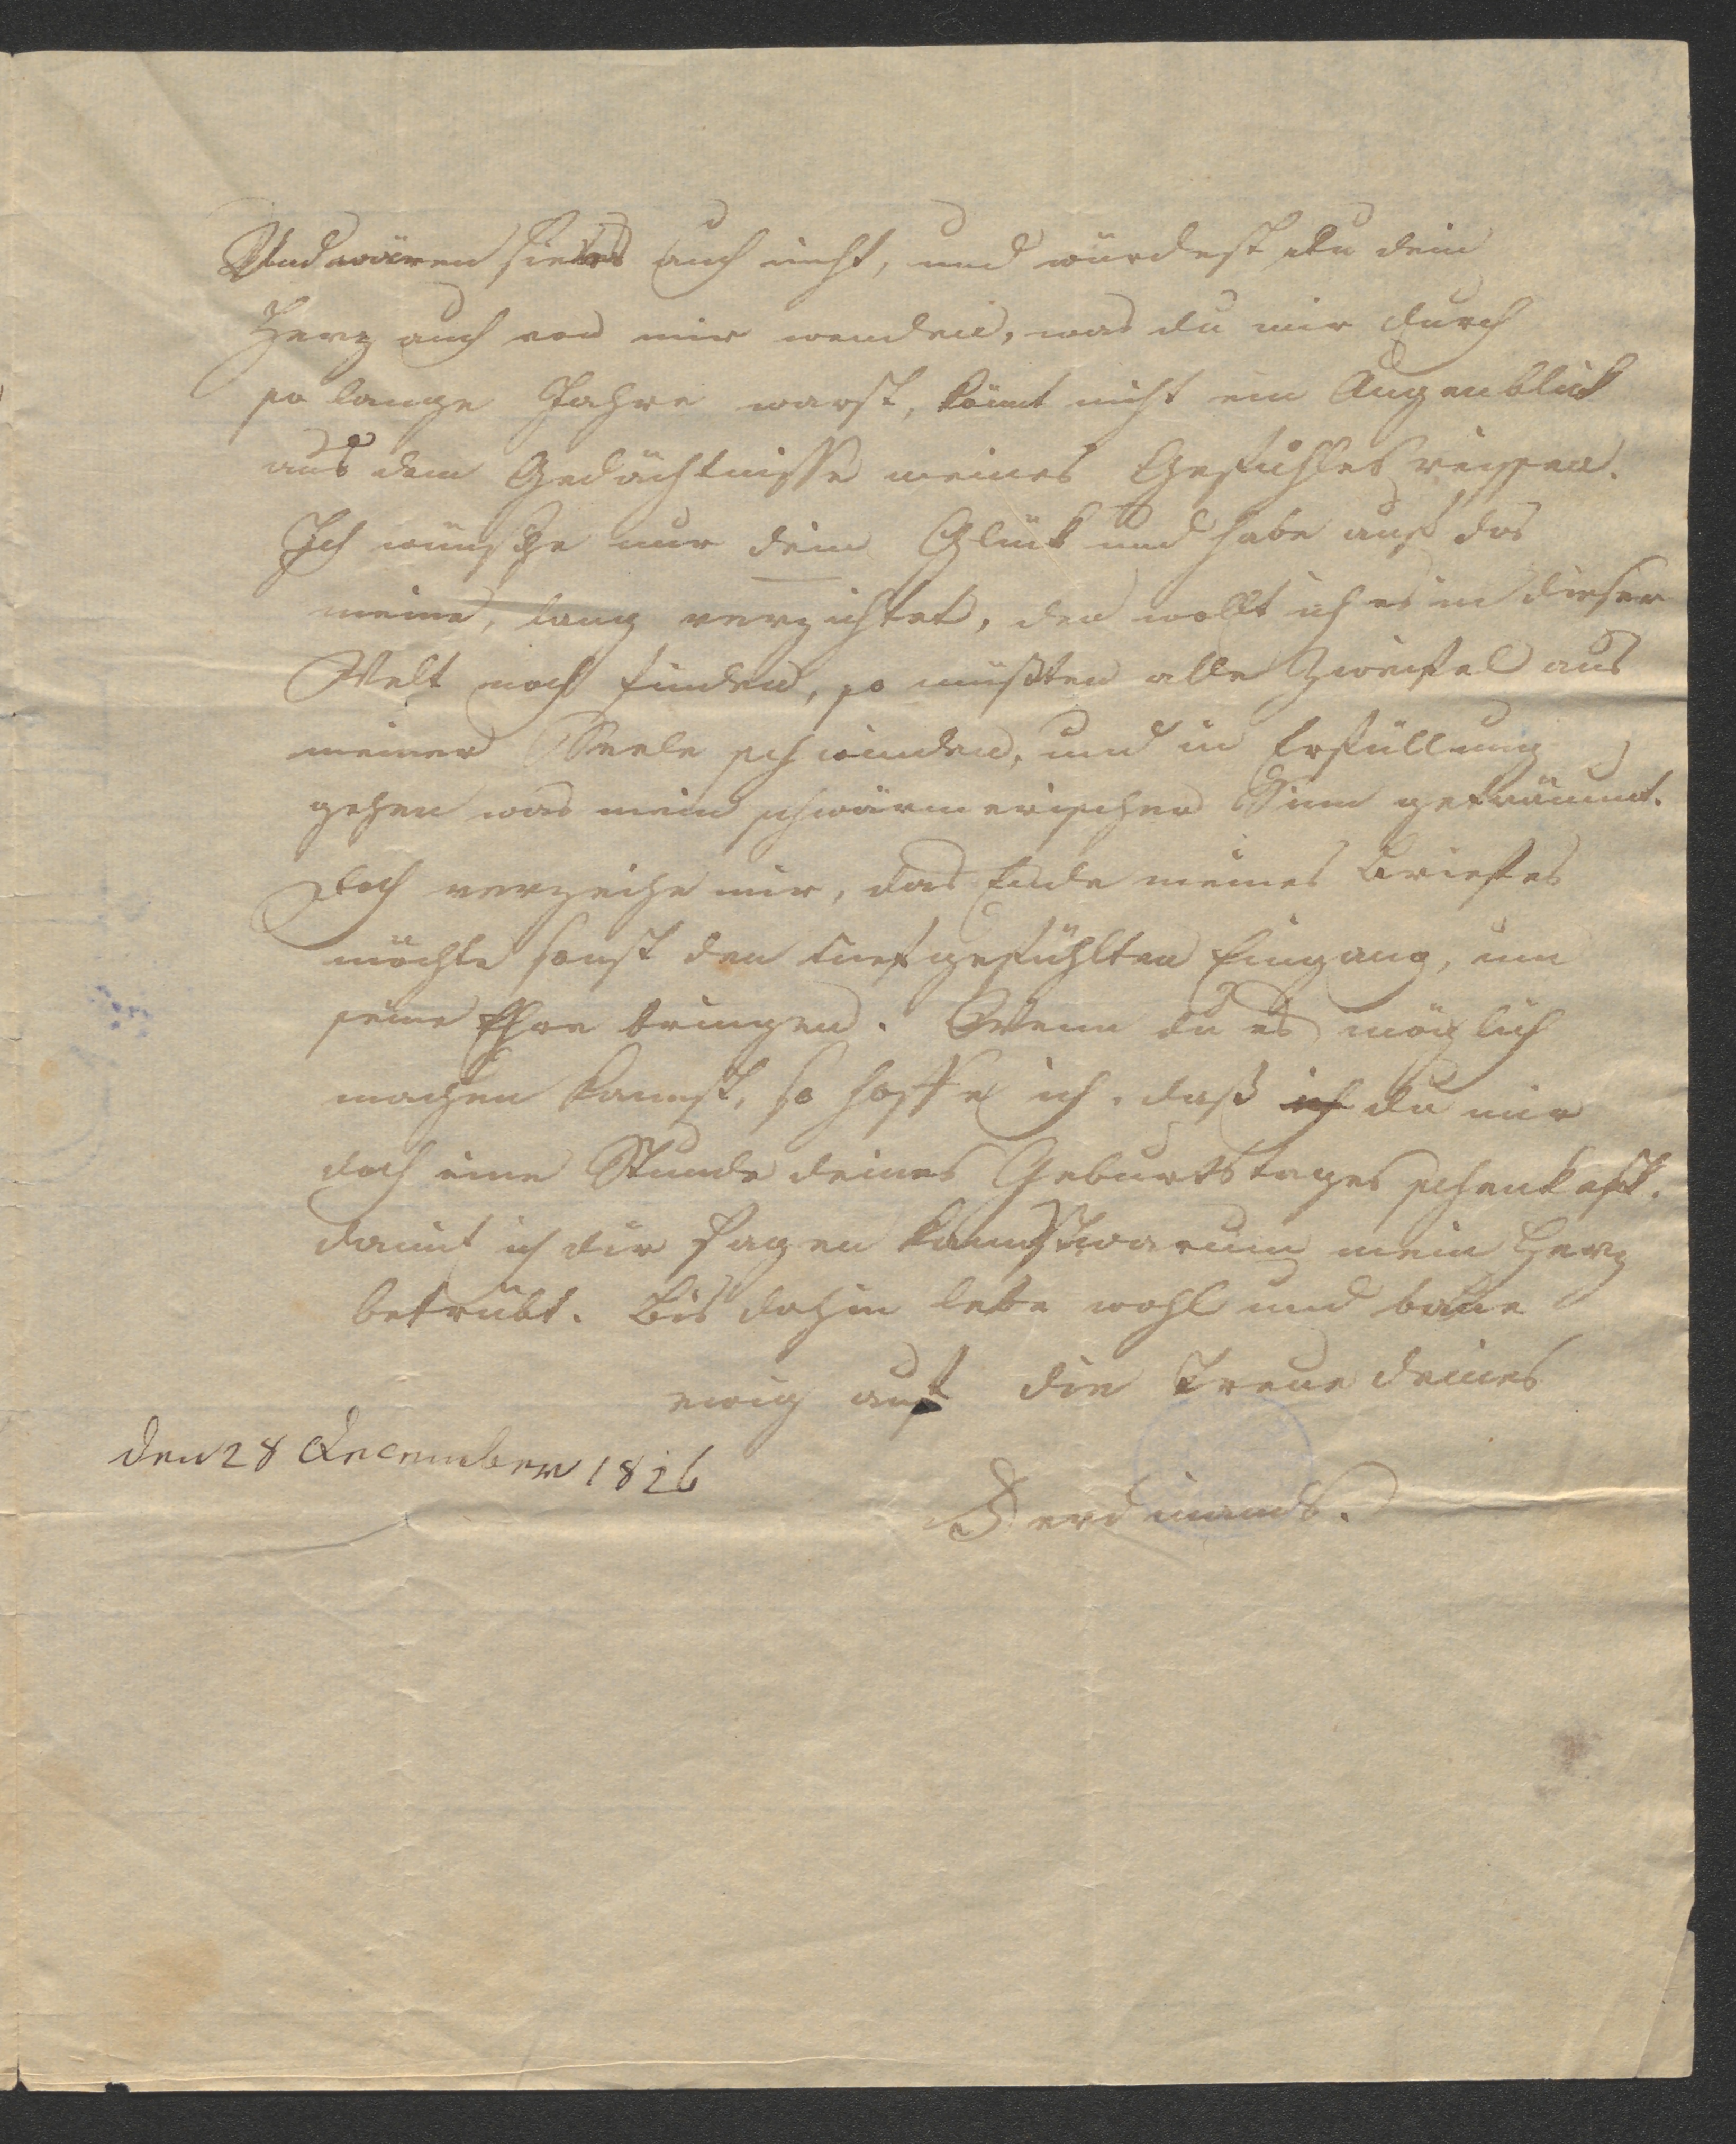 Und wären sie es auch nicht, und würdest du dein
Herz auch von mir wenden, was du mir durch
so lange Jahre warst, könnt nicht ein Augenblick
aus dem Gedächtnisse meines Gefühles reissen.
Ich wünsche nur dein Glück und habe auf das
meine, lang verzichtet, den wollt ich es in dieser
Welt noch finden, so müßten alle Zweifel aus
meiner Seele schwinden, und in Erfüllung
gehen was mein schwärmerischer Sinn geträumt.
Doch verzeihe mir, das Ende meines Briefes
möchte sonst den tiefgefühlten Eingang, um
seine Ehre bringen. Wenn du es möglich
machen kannst, so hoffe ich, daß ich du mir
doch eine Stunde deines Geburtstages schenkest.
damit ich dir sagen kann warum mein Herz
betrübt. Bis dahin lebe wohl und baue
ewig auf die Treue deines
den 28 December 1826
Ferdinands.